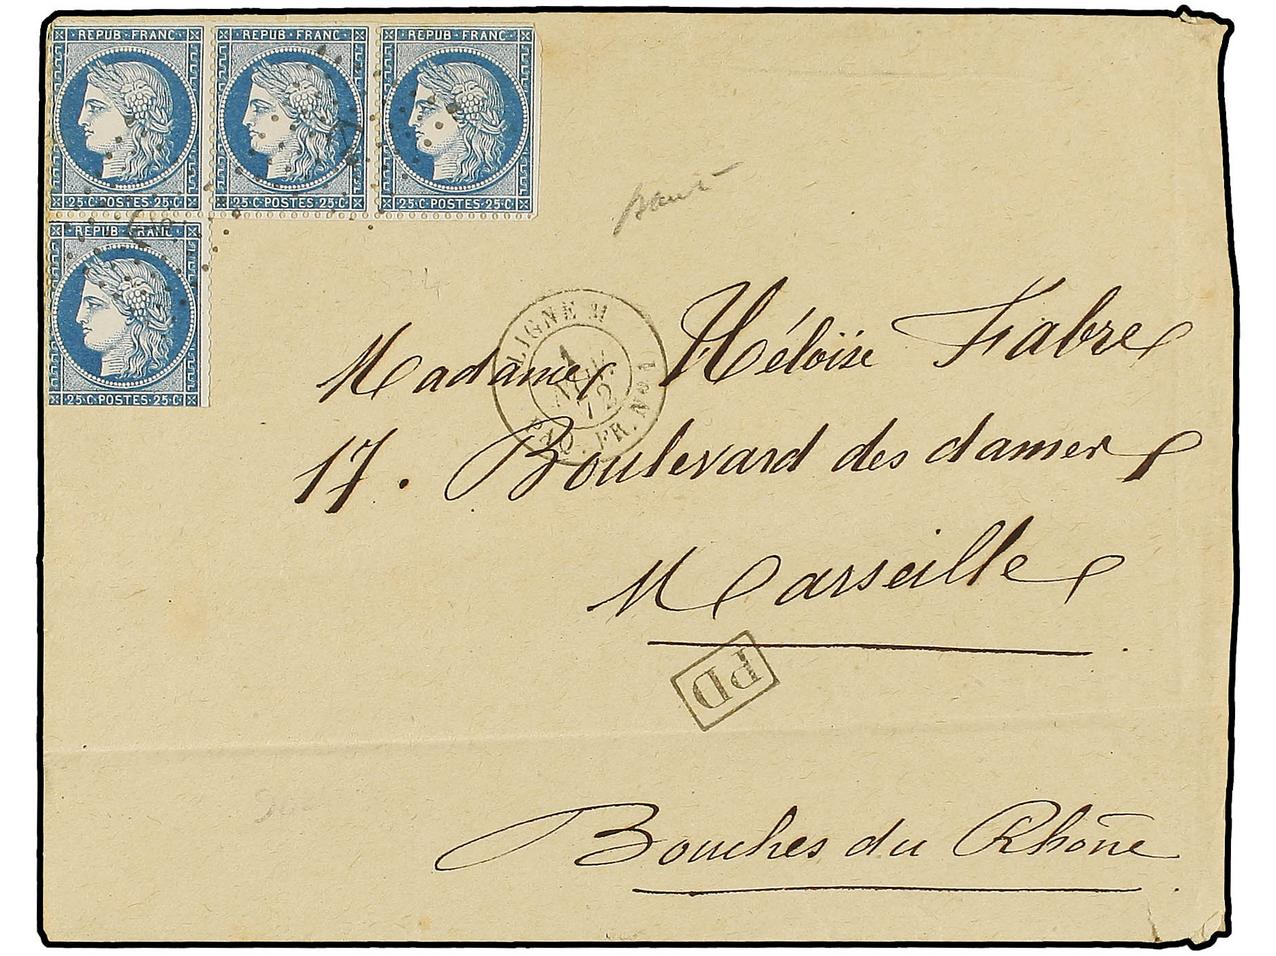 REPUB FRANC REPUB FRANC REPUB FRANC
25·C·POSTES·25·C 25·C·POSTES·25·C 25·C·POSTES·25·C
REPUB FRANC
25·C·POSTES·25·C
LIGNE
1
72
FR. No 1
Madame Héloïse Fabre
17. Boulevard des dames
Marseille
PD
Bouches du Rhône